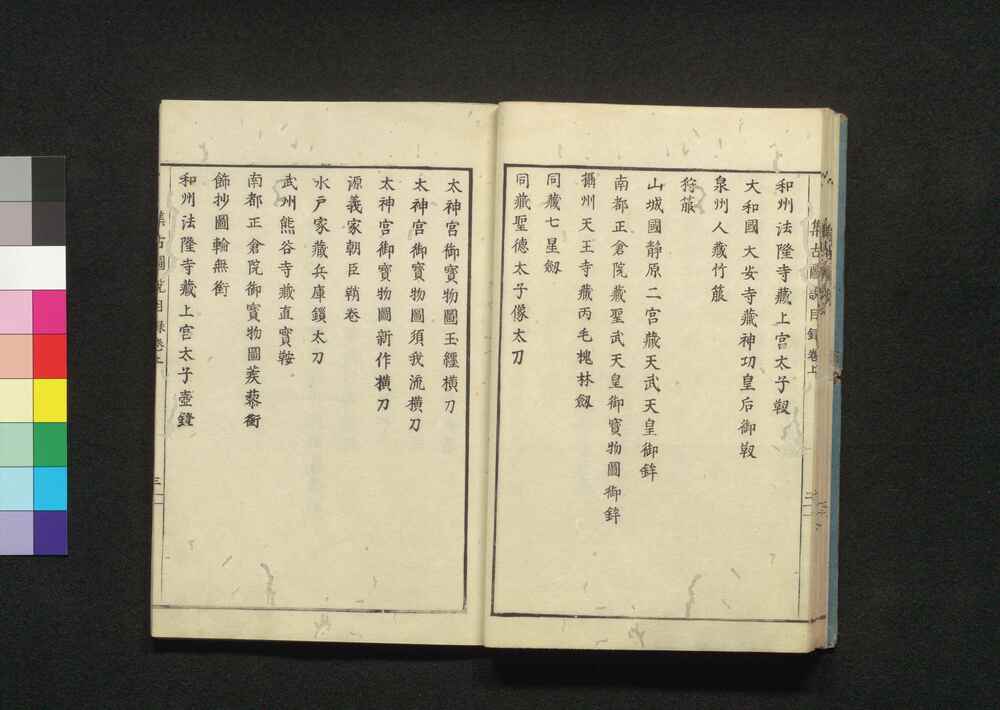 和州法隆寺藏上宮太子靫
大和國大安寺藏神功皇后御靫
泉州人藏竹箙
狩箙
山城國静原二宮藏天武天皇御鉾
南都正倉院藏聖武天皇御寳物圖御鉾
攝州天王寺藏丙毛槐林劔
同藏七星劔
同藏聖德太子像太刀
太神宮御寳物圖玉纒横刀
太神宮御寳物圖須我流横刀
太神宮御寳物圖新作横刀
源義家朝臣鞘卷
水戸家藏兵庫鎖太刀
武州熊谷寺藏直實鞍
南都正倉院御寳物圖蒺藜銜
餝抄圖輪無銜
和州法隆寺藏上宮太子壺鐙